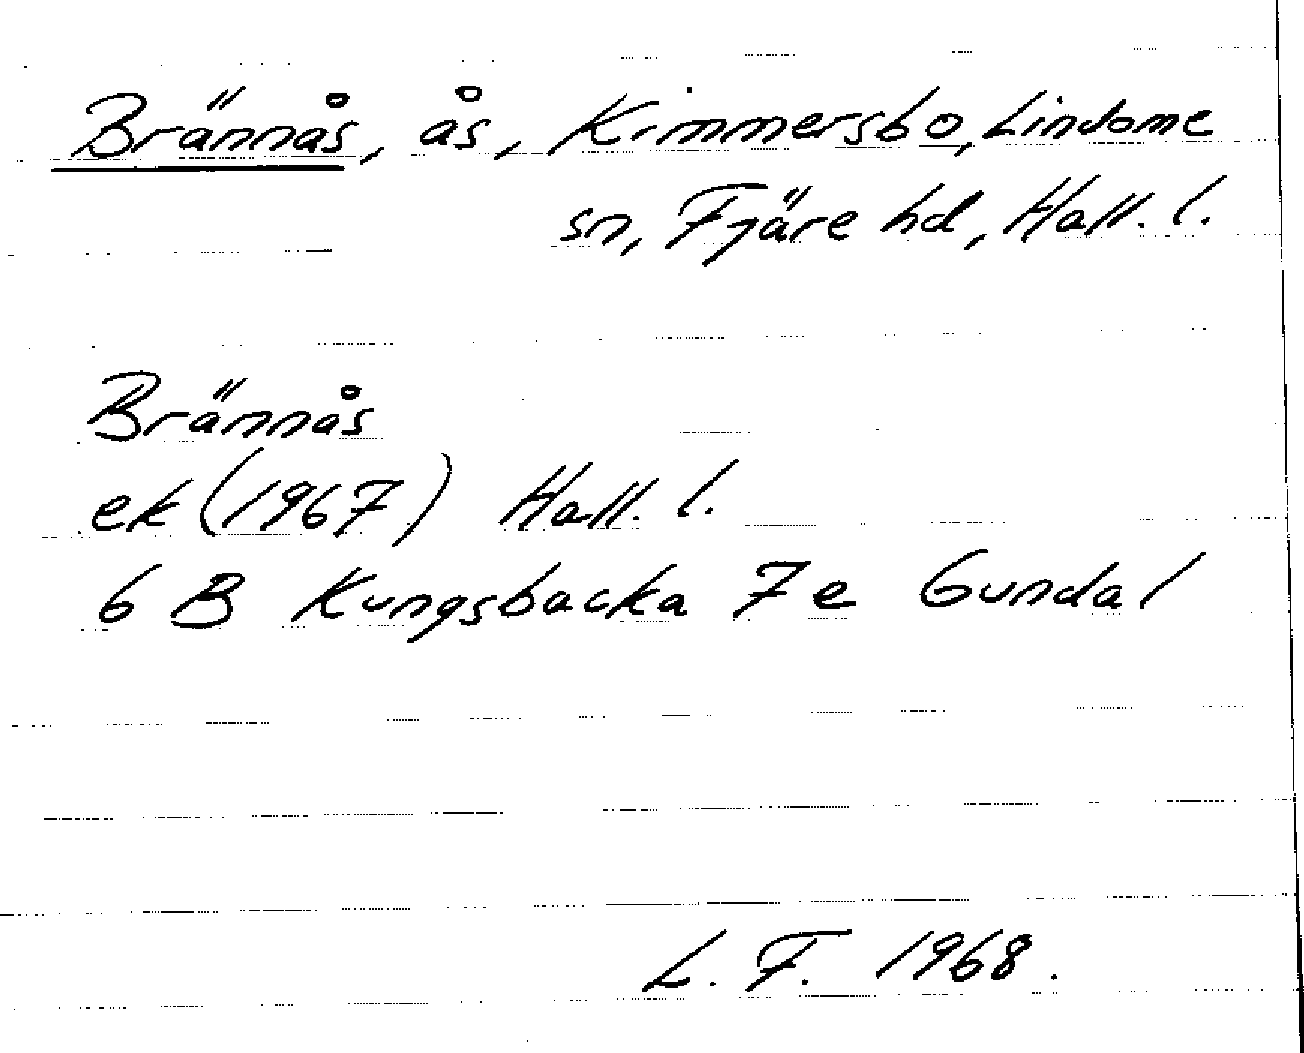 Brännås, ås, Kimmersbo, Lindome
sn, Fjäre hd, Hall. l.
Brännås
ek (1967) Hall. l.
6 B Kungsbacka 7e Gundal
L. F. 1968.